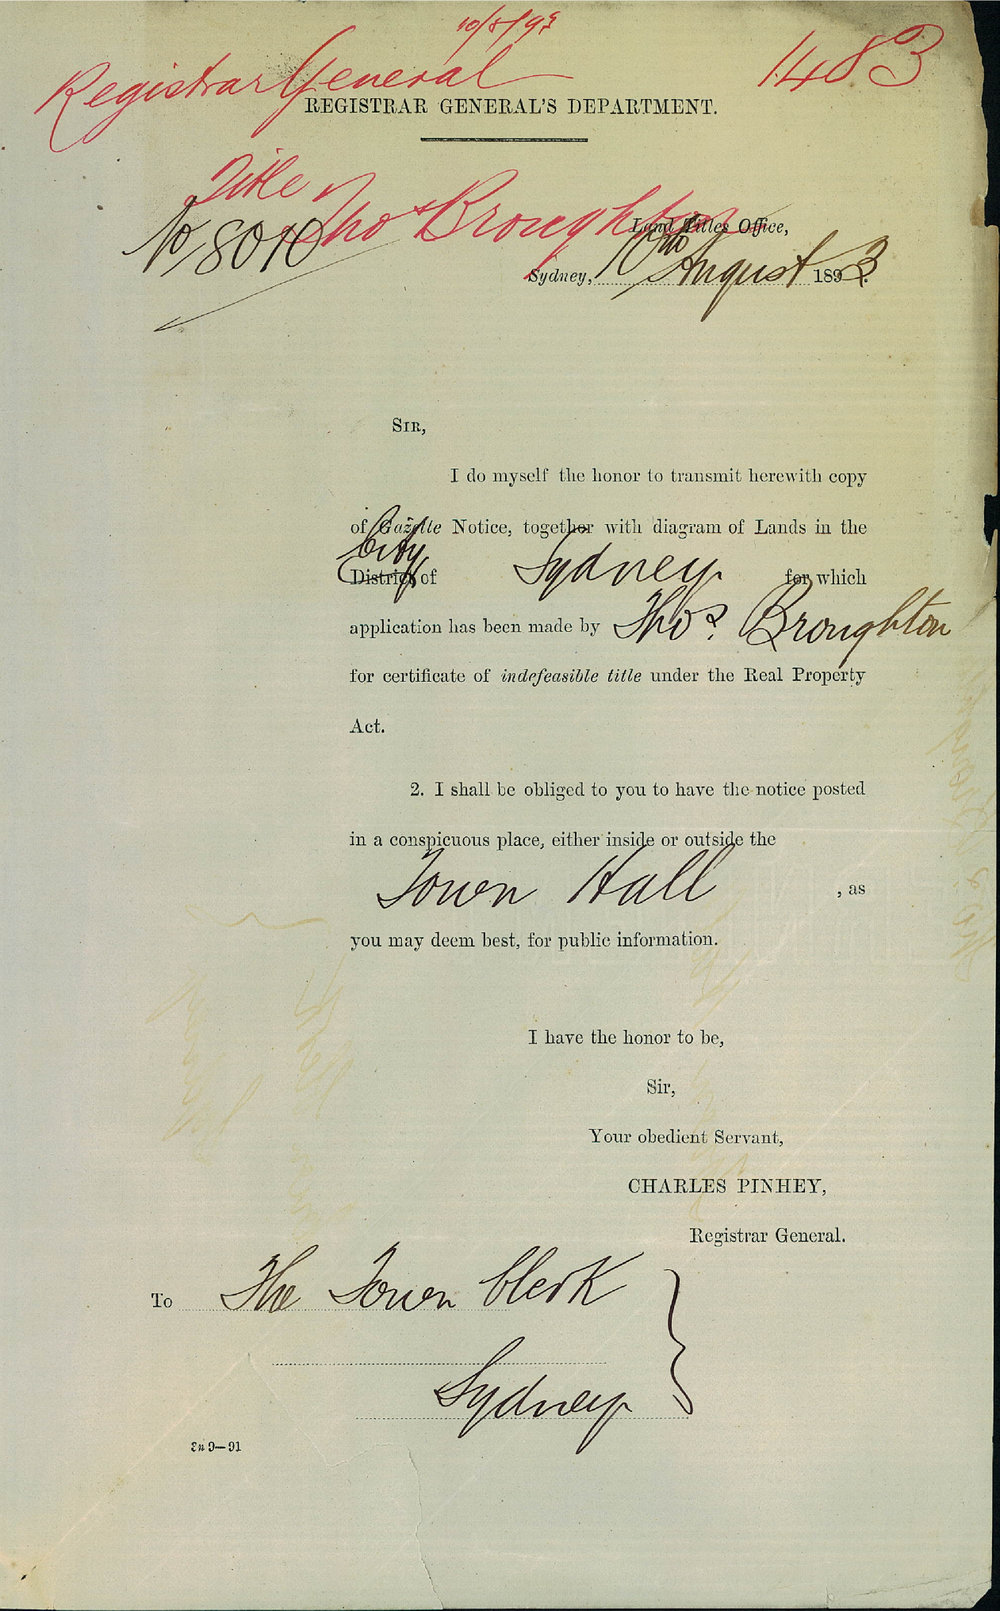 10/8/93
1483
Registrar General
REGISTRAR GENERAL'S DEPARTMENT.
Title
Thos Broughton
No 8010
Land Titles Office,
Sydney, 10th August 1893.
SIR,
I do myself the honor to transmit herewith copy
of Gazette Notice, together with diagram of Lands in the
City
District of Sydney for which
application has been made by Thos. Broughton
for certificate of indefeasible title under the Real Property
Act.
2. I shall be obliged to you to have the notice posted
in a conspicuous place, either inside or outside the
Town Hall , as
you may deem best, for public information.
I have the honor to be,
Sir,
Your obedient Servant,
CHARLES PINHEY,
Registrar General.
To The Town Clerk
Sydney
9—91